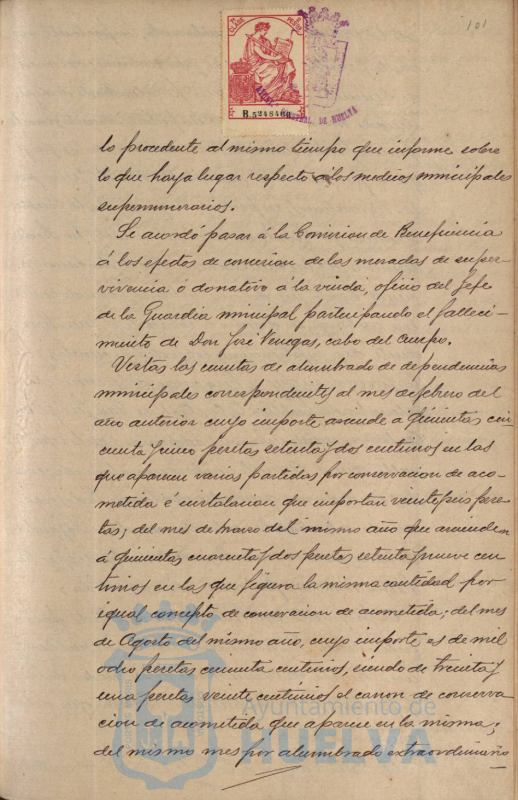 101
11ª CLASE
B.5248460
AYUNT. CONSTNAL. DE HUELVA
lo procedente al mismo tiempo que informe sobre
lo que haya lugar respecto á los medicos municipales
supernumerarios.
Se acordó pasar á la Comision de Beneficencia
á los efectos de concesion de las mesadas de super-
vivencia ó donativo á la viuda, oficio del Jefe
de la Guardia municipal participando el falleci-
miento de Don José Venegas, cabo del Cuerpo.
Vistas las cuentas de alumbrado de dependencias
municipales correspondientes al mes de febrero del
año anterior cuyo importe asciende á quinientas cin-
cuenta y cinco pesetas setenta y dos centimos en las
que aparecen varias partidas por conservacion de aco-
metida é instalacion que importan veinte y seis pese-
tas; del mes de marzo del mismo año que ascienden
á quinientas cuarenta y dos pesetas setenta y nueve cen-
timos en las que figura la misma cantidad por
igual concepto de conservacion de acometida; del mes
de Agosto del mismo año, cuyo importe es de mil
ocho pesetas cincuenta centimos, siendo de treinta y
una pesetas veinte centimos el canon de conserva-
cion de acometida que aparece en la misma;
del mismo mes por alumbrado extraordinario
Ayuntamiento de
HUELVA